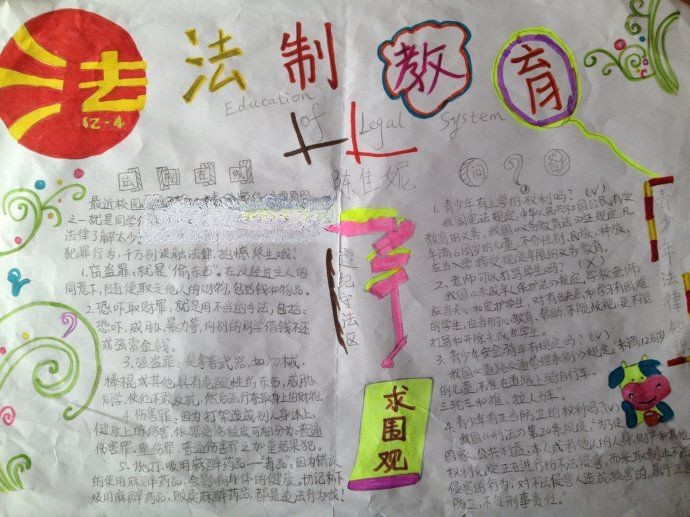 法
12-4
法制教育
Education of Legal System
法制在线
陈佳妮
最近校园
之一就是同学们
法律了解太少
犯罪行为,千万别误触法律,抱憾终生哦!
1.窃盗罪:就是"偷东西"。在没经过主人的
同意下,随便取走他人的财物,包括钱和物品。
2.恐吓取财罪:就是用不当的手法,包括:
恐吓、威胁、暴力等,向别的同学借钱不还
或强索金钱。
3.强盗罪:是拿着武器,如:刀械、
棒棍或其他具有危险性的东西,威胁
同学,使他不敢反抗,然后强行夺取身上的财物。
4.伤害罪:因为打架造成别人身体上、
健康上的伤害,依照受伤程度可细分为:普通
伤害罪、重伤罪、普通伤害罪之加重结果犯。
5.
吸用麻醉药品——毒品:因为错误
的使用麻醉药品,会影响身体的健康。切记不可
吸用麻醉药品、贩卖麻醉药品,都是违法行为喔!
遵纪守法区
求围观
问?答
1.青少年有上学的权利吗?(√)
我国宪法规定,中华人民共和国公民有受
教育的义务。我国《义务教育法》还规定,凡
年满6周岁的儿童,不分性别、民族、种族,
应当入学接受规定年限的义务教育。
2.老师可以打骂学生吗?(×)
我国《未成年人保护法》规定,学校、老师
应当关心、爱护学生,对有缺点、
有困难
的学生,应当耐心教育、帮助,不能歧视,更不能
打骂和开除未成年学生。
3.青少年骑车有规定吗?(√)
我国《道路交通管理条例》规定:未满12周岁
的儿童,不准在道路上骑自行车、
三轮车和推、拉人力车。
4.青少年有正当防卫的权利吗?(√)
我国《刑法》第20条规定:"为了使
国家、公共利益、本人或者他人的人身、财产和其他
权利免受正在进行的不法侵害,而采取制止不法
侵害的行为,对不法侵害人造成损害的,属于正当
防卫,不负刑事责任。"
青少年法律知识